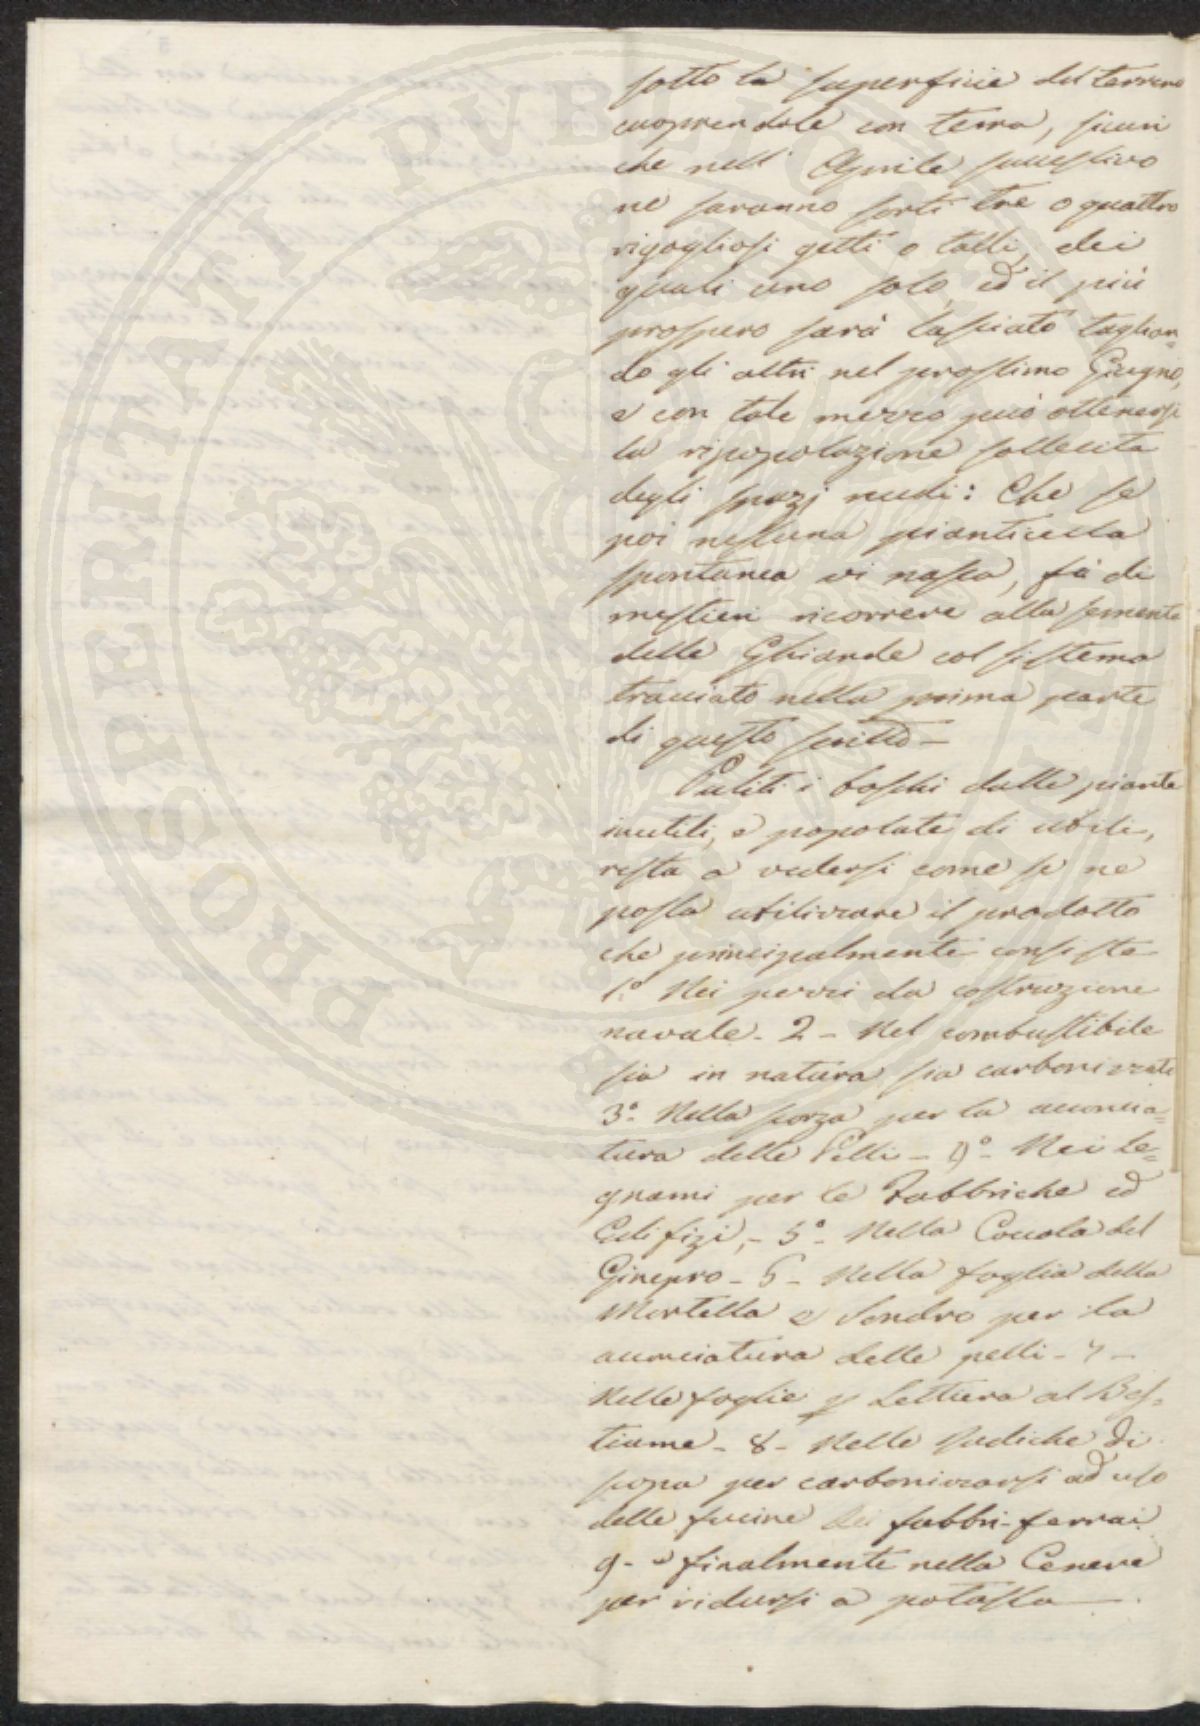 sotto la superficie del terreno
cuoprendole con terra, sicuri
che nell' Aprile successivo
ne saranno sorti tre o quattro
rigogliosi getti o talli, dei
quali uno solo, ed il più
prospero sarà lasciato taglian=
do gli altri nel prossimo Giugno,
e con tale mezzo può ottenersi
la ripopolazione sollecita
degli spazj nudi: Che se
poi nessuna pianticella
spontanea vi nasca, fà di
mestieri ricorrere alla semente
delle Ghiande col sistema
tracciato nella prima parte
di questo scritto —
Puliti i boschi dalle piante
inutili, e popolati di utili,
resta a vedersi come se ne
possa utilizzare il prodotto
che principalmente consiste
1° Nei pezzi da costruzione
navale - 2 - Nel combustibile
sia in natura sia carbonizzato
3° Nella scorza per la acconcia=
tura delle Pelli - 4° - Nei Le=
gnami per le Fabbriche ed
Edifizi, - 5° - Nella Coccola del
Ginepro - 6 - Nella foglia della
Mortella e Sondro per la
acconciatura delle pelli - 7 -
Nelle foglie p Lettiera al Bes-
tiame - 8 - Nelle radiche di
scopa per carbonizzarsi ad uso
delle fucine dei fabbri-ferrai
9 - e finalmente nella Cenere
per ridursi a potassa —
PROSPERITATI PUBLICAE